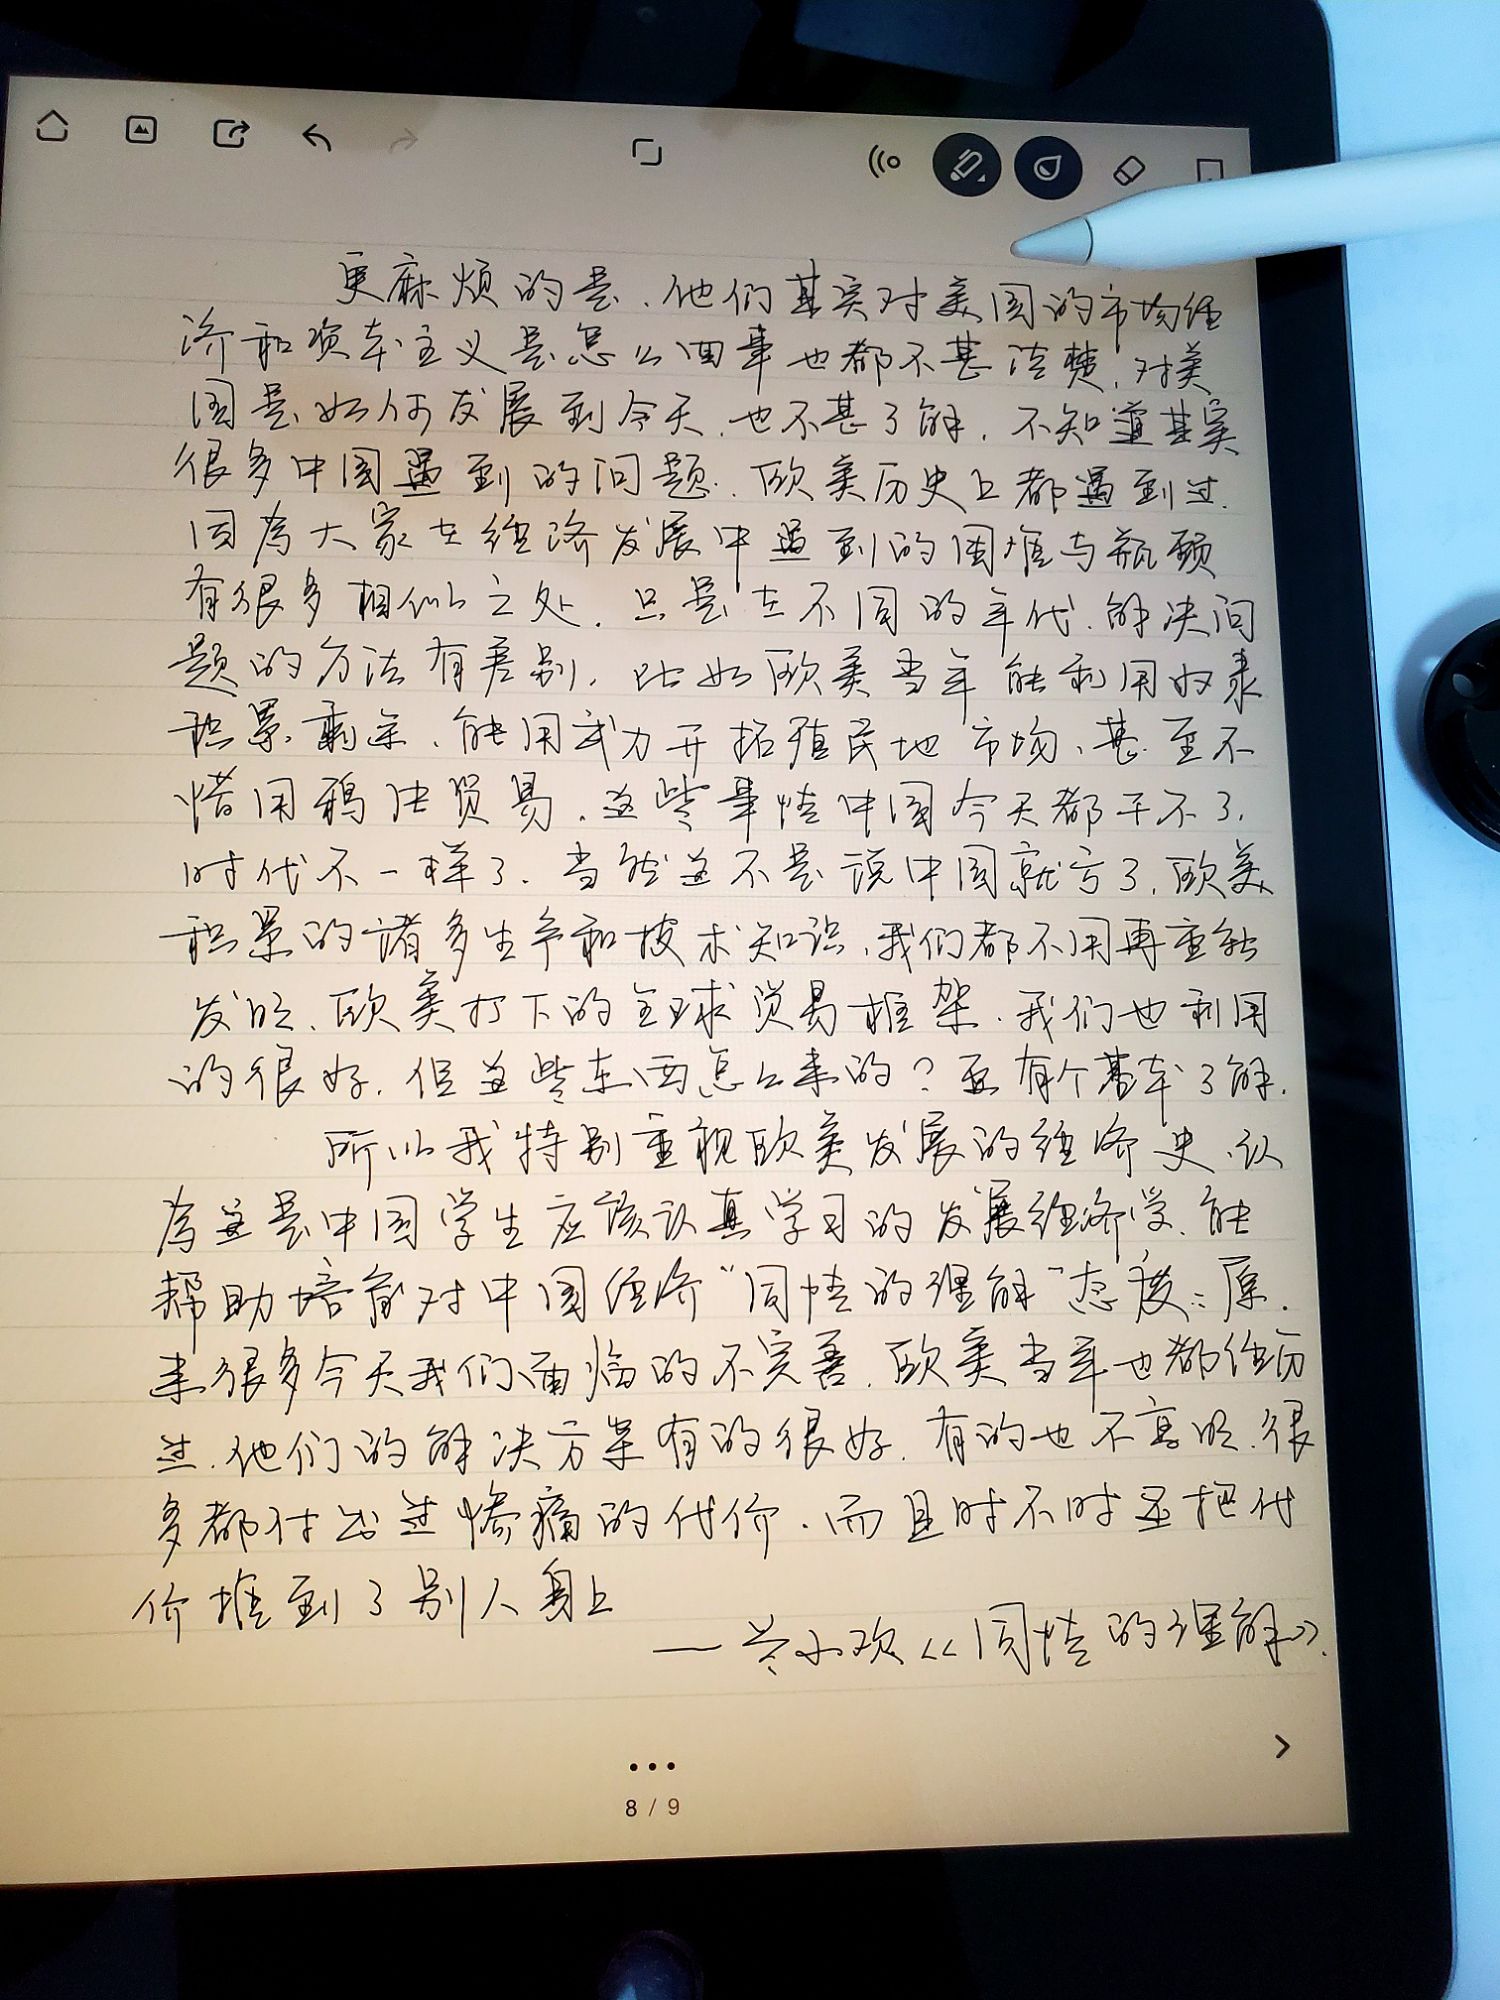 更麻烦的是、他们其实对美国的市场经
济和资本主义是怎么回事也都不甚清楚，对美
国是如何发展到今天，也不甚了解，不知道其实
很多中国遇到的问题，欧美历史上都遇到过.
因为大家在经济发展中遇到的困难与瓶颈
有很多相似之处，只是在不同的年代、解决问
题的方法有差别，比如欧美当年能利用奴隶
积累剩余、能用武力开拓殖民地市场、甚至不
惜用鸦片贸易，这些事情中国今天都干不了，
时代不一样了，当然这不是说中国就亏了，欧美
积累的诸多生产和技术知识，我们都不用再重新
发明、欧美打下的全球贸易框架，我们也利用
的很好，但这些东西怎么来的？要有个基本了解.
所以我特别重视欧美发展的经济史、认
为这是中国学生应该认真学习的发展经济学，能
帮助培育对中国经济“同情的理解”态度：原
来很多今天我们面临的不完善，欧美当年也都经历
过，他们的解决方案有的很好，有的也不高明，很
多都付出过惨痛的代价，而且时不时还把代
价推到了别人身上
—兰小欢《同情的理解》.
8 / 9